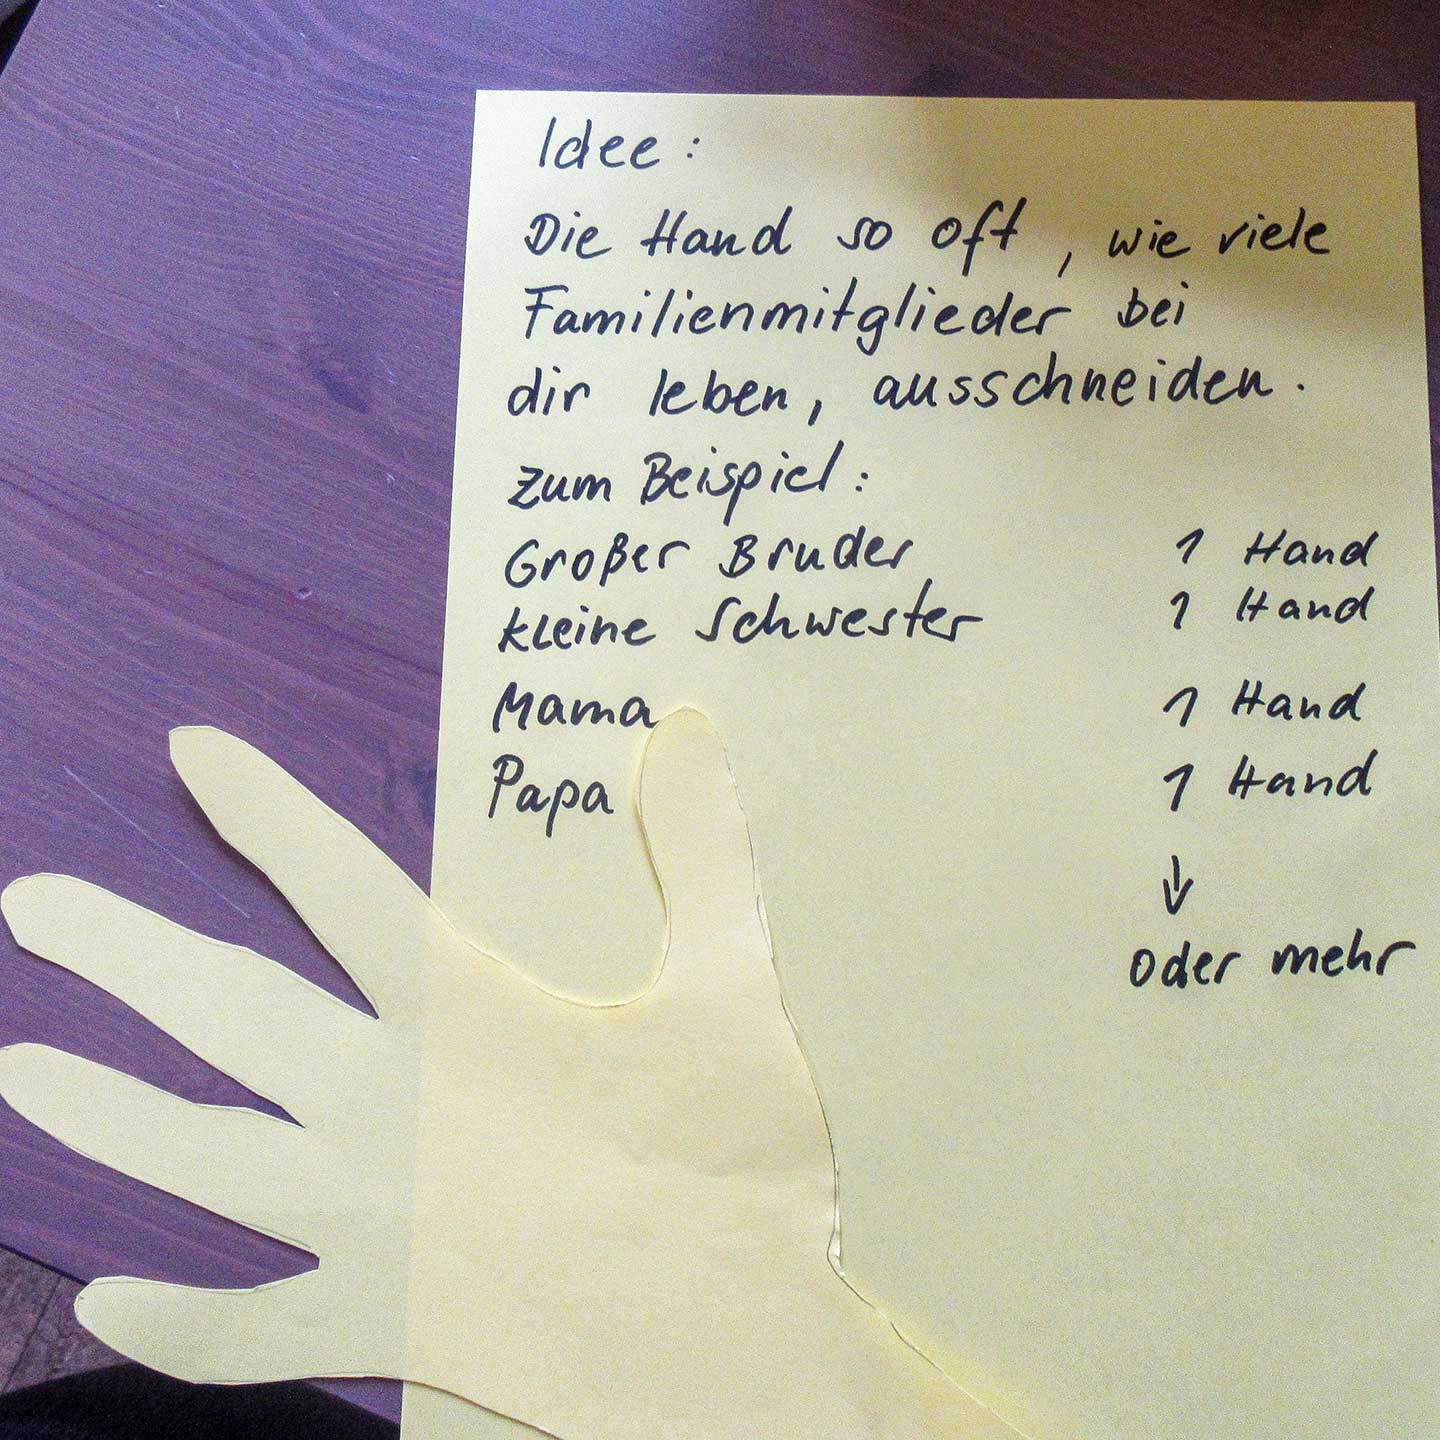 Idee:
Die Hand so oft, wie viele
Familienmitglieder bei
dir leben, ausschneiden.
zum Beispiel:
Großer Bruder 1 Hand
kleine Schwester 1 Hand
Mama 1 Hand
Papa 1 Hand
↓
oder mehr